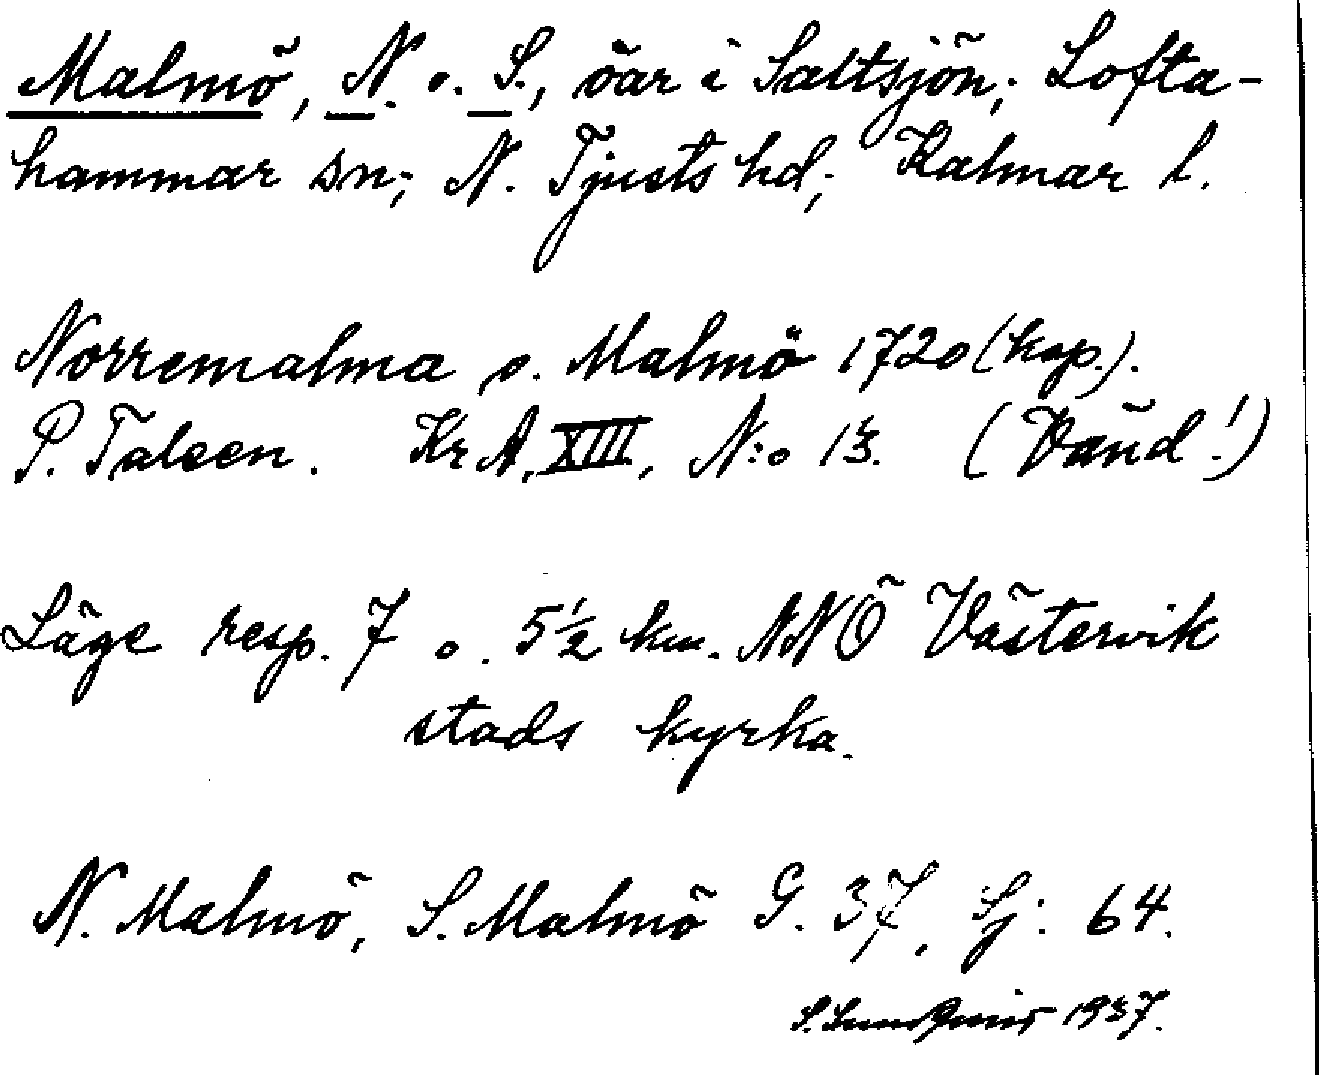 Malmö, N. o. S., öar i Saltsjön; Lofta-
hammar sn; N. Tjusts hd; Kalmar l.
Norremalma o. Malmö 1720 (kop.).
P. Taleen. Kr A, XIII, N:o 13. (Vänd!)
Läge resp. 7 o. 5½ km. NNÖ Västervik
stads kyrka.
N. Malmö, S. Malmö G. 37, Sj: 64.
S. Sundqvist 1937.